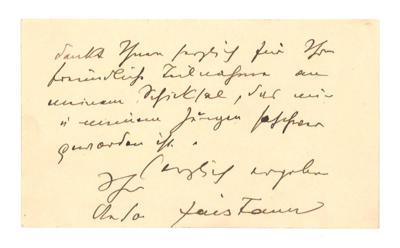 dankt Ihnen herzlich für Ihre
freundliche Teilnahme an
meinem Schicksal, das mir
u meinem Jungen
geworden ist.
Ihr herzlich ergeben